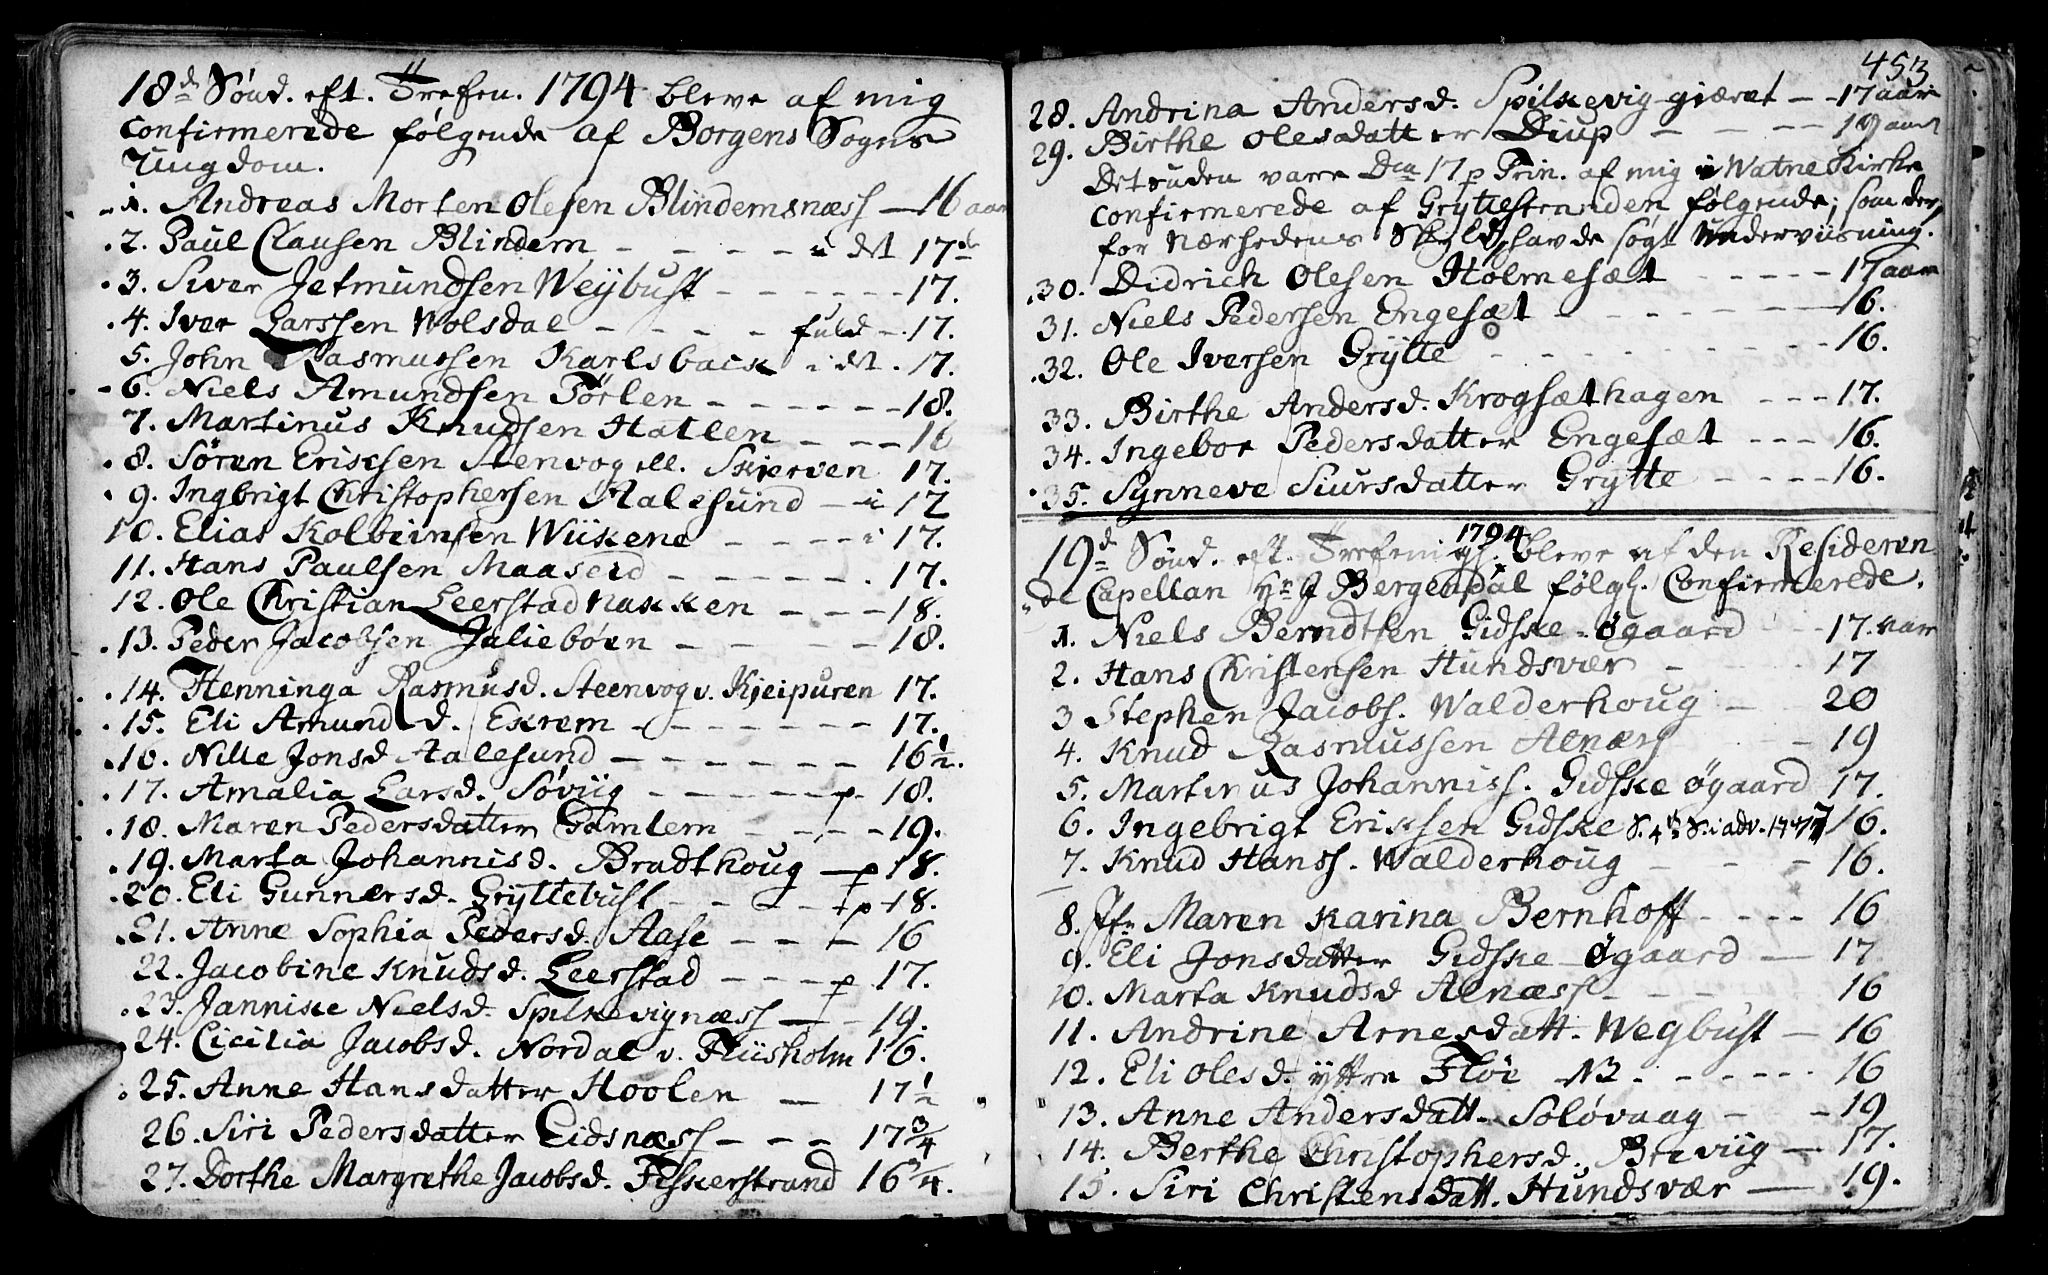 18d Sönd. eft. Trefen. 1794 bleve af mig
Confirmerede følgende af Borgens Sogns
Ungdom.
1. Andreas Morten Olesen Blindemsnæss — 16 aar
2. Paul Clausen Blindem - - - - i det 17de
3. Siver Jetmundsen Weybust - - - - - - 17.
4. Iver Larssen Wolsdal - - - - fuld - 17.
5. John Rasmussen Karlsback - i det. 17.
6. Niels Amundsen Törlen - - - - - - 18.
7. Martinus Knudsen Hatlen - - - 16
8. Sören Ericksen Stenvog ell. Skierven 17.
9. Ingbrigt Christophersen Aalesund — i 17
10. Elias Kolbeinsen Wiikene - - - - i 17.
11. Hans Paulsen Maaseid - - - - - - 17.
12. Ole Christian Leerstadnakken - - - 18.
13. Peder Jacobsen Jaliebøen - - - - 18.
14. Henninga Rasmusd. Steenvog v. Kjeipuren 17.
15. Eli Amundsd. Exrem - - - - - - - 17.
16. Nille Jonsd Aalesund - - - - - - 16 1/2.
17. Amalia Larsd. Søviig - - - - - p. 18.
18. Maren Pedersdatter Gamlem - - - - 19.
19. Marta Johannisd. Bradthoug — p 18.
20. Eli Gunnersd. Gryttebust - - - - p 18.
21. Anne Sophia Pedersd. Aase - - - 16
22. Jacobine Knudsd. Leerstad - - - p 17.
23. Jannike Nielsd. Spilkevignæss — - 19.
24. Cicilia Jacobsd. Nordal v. Fliisholm 16.
25. Anne Hansdatter Hoolen — 17 1/2
26. Siri Pedersdatter Eidsnæss - - - 17 3/4
27. Dorthe Margrethe Jacobsd. Fiskerstrand 16 3/4.
453
28. Andrina Andersd. Spilkevig-giæret - - 17 aar
29. Birthe Olesdatter Diup - - - - 19 aar
Desuden vare Dca 17 p Trin. af mig i Watne Kirke
Confirmerede af Gryttestranden følgende; som der,
for Nærhedens Skyld, havde søgt Underviisning.
30. Didrich Olesen Holmesæt - - - - - 17 aar
31. Niels Pedersen Engesæt - - - - - - 16.
32. Ole Iversen Grytte - - - - - - - - 16.
33. Birthe Andersd. Krogsæthagen - - - 17.
34. Ingebor Pedersdatter Engesæt - - - 16.
35. Synneve Siursdatter Grytte - - - - 16.
1794
19d Sönd. eft. Trefenigh. bleve af den Resideren
de Capellan Hr J Bergendal følgl. Confirmerede.
1. Niels Berndtsen Gidske-Øgaard - 17. aar
2. Hans Christensen Hundsvær - 17
3 Stephen Jacobs. Walderhoug - - 20
4. Knud Rasmussen Alnæss - 19
5. Martinus Johanniss. Gidske Øgaard 17.
6. Ingebrigt Ericksen Gidske 16.
7. Knud Hanss. Walderhoug - - - 16.
8. Jfr Maren Karina Bernhoff - - - - 16
9. Eli Jonsdatter Gidske Øgaard — 17
10. Marta Knudsd Alnæss - - - - 16
11. Andrine Arnesdatt. Wegbust — 16
12. Eli Olesd. yttre Fløe NB. - - - - - 16
13. Anne Andersdatt. Soløvaag - - 19
14. Berthe Christophersd. Breviig — 17.
15. Siri Christensdatt. Hundsvær — 19.